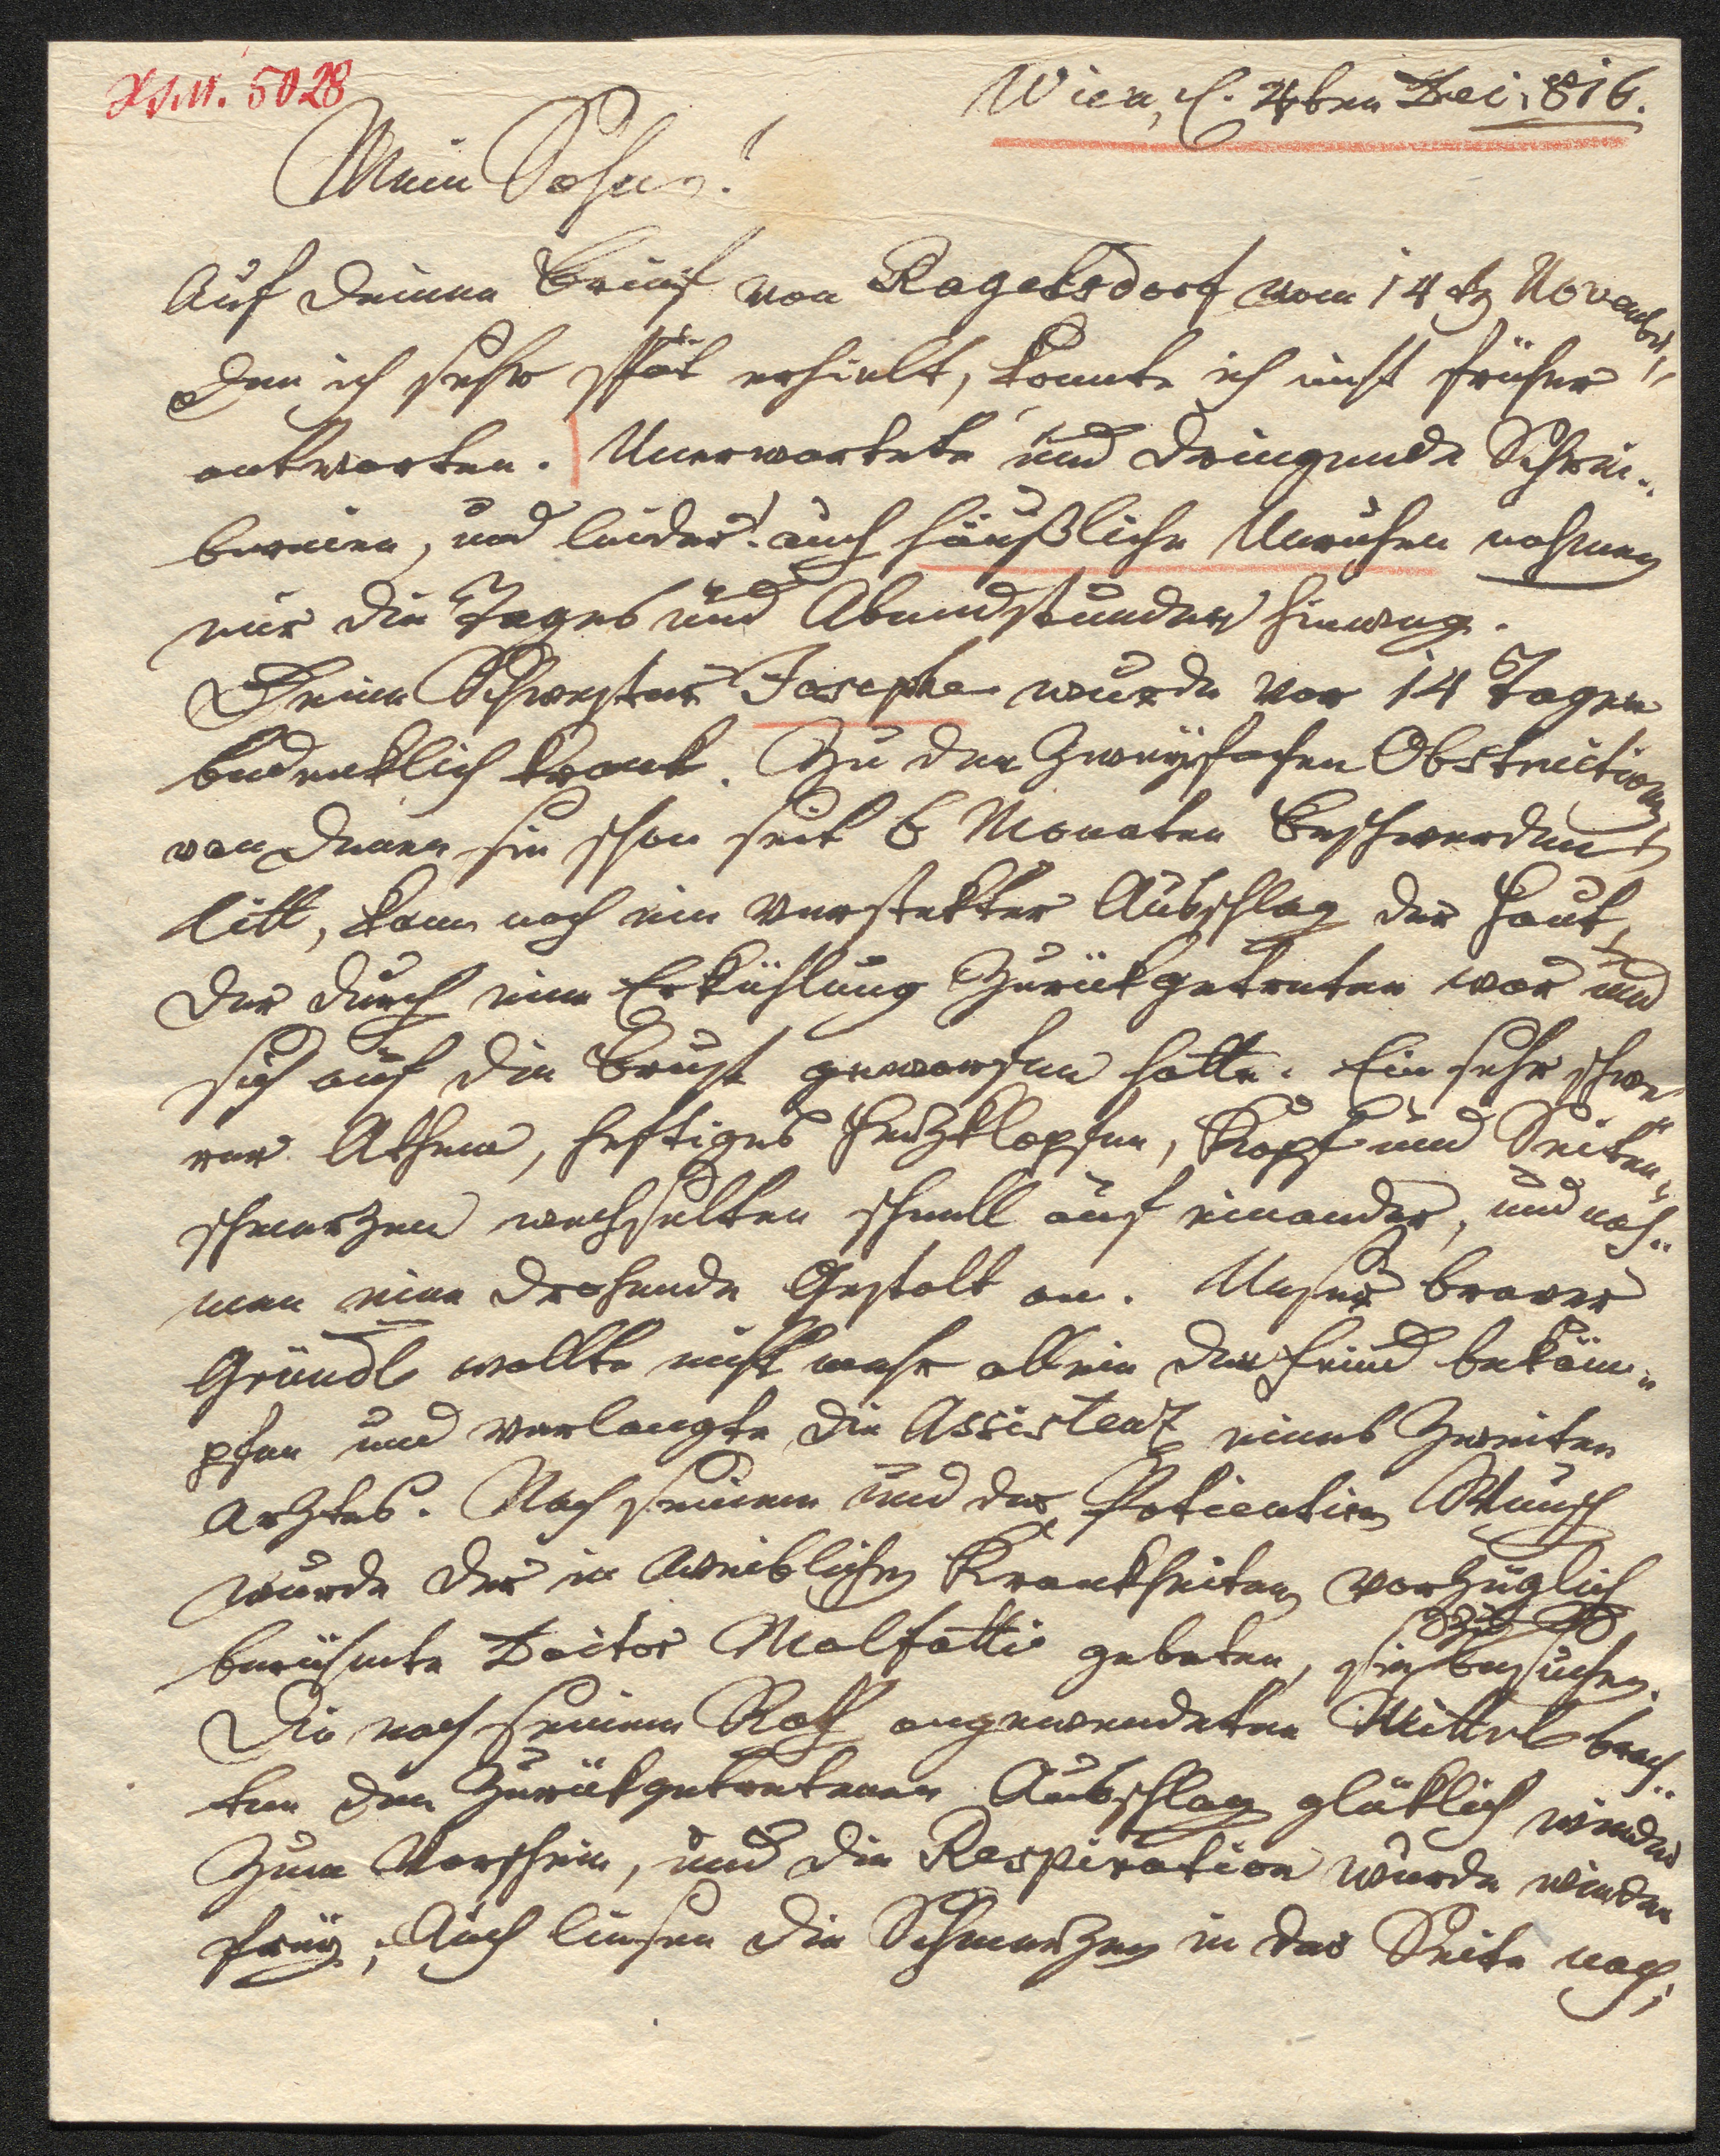 Wien, d. 4ten Dec. 816.
Mein Sohn!
Auf deinen Brief von Ragelsdorf vom 14 November,
den ich sehr spät erhielt, konnte ich nicht früher
antworten. Unerwartete und dringende Schrei-
bereien, und leider! auch häußliche Unruhen nahmen
mir die Tages und Abendstunden hinweg.
Deine Schwester Josephe wurde vor 14 Tagen
bedenklich krank. Zu den zweyfachen Obstructionen
von denen sie schon seit 6 Monaten Beschwerden
litt, kam noch ein versteckter Ausschlag der Haut,
der durch eine Erkühlung zurückgetreten war und
sich auf die Brust geworfen hatte. Ein sehr schwe-
rer Athem, heftiges Herzklopfen, Kopf und Seiten-
schmerzen wechselten schnell auf einander, und nah-
men eine drohende Gestalt an. Unser braver
Gründl wollte nicht mehr allein den Feind bekäm-
pfen und verlangte die Assistenz eines zweiten
Arztes. Nach seinem und der Patientin Wunsch
wurde der in weiblichen Krankheiten vorzüglich
berühmte Doctor Malfatti gebeten, sie zu besuchen.
Die nach seinem Rath angewendeten Mittel brach-
ten den zurückgetretenen Ausschlag glüklich wieder
zum Vorschein, und die Respiration wurde wieder
frey; Auch liesen die Schmerzen in der Seite nach;